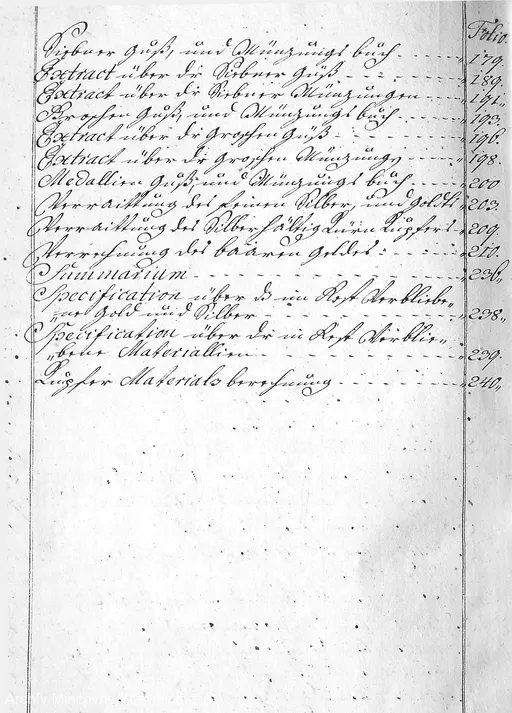 Folio.
Siebner Guß, und Münzungs buch - - - - „179.
Extract über dr Siebner Guß - - - - „189.
Extract über dr Siebner Münzungen - - - „191.
Groschen Guß, und Münzungs buch - - - - „193.
Extract über dr Groschen Guß - - - - „196.
Extract über dr Groschen Münzung - - - - „198.
Medallien Guß, und Münzungs buch - - - - „200
Verraittung des feinen Silber, und Goldts „203.
Verraittung des Silberhältig Kürn Kupfers - „209.
Verrechnung des baaren Geldes - - - - „210.
Summarium - - - - „236„
Specification über im Rest Verbliebe„
„ne Gold und Silber - - - - „238„
Specification über dr in Rest Verblie„
„bene Materiallien - - - - „239.
Kupfer Materials berechnung - - - - „240„